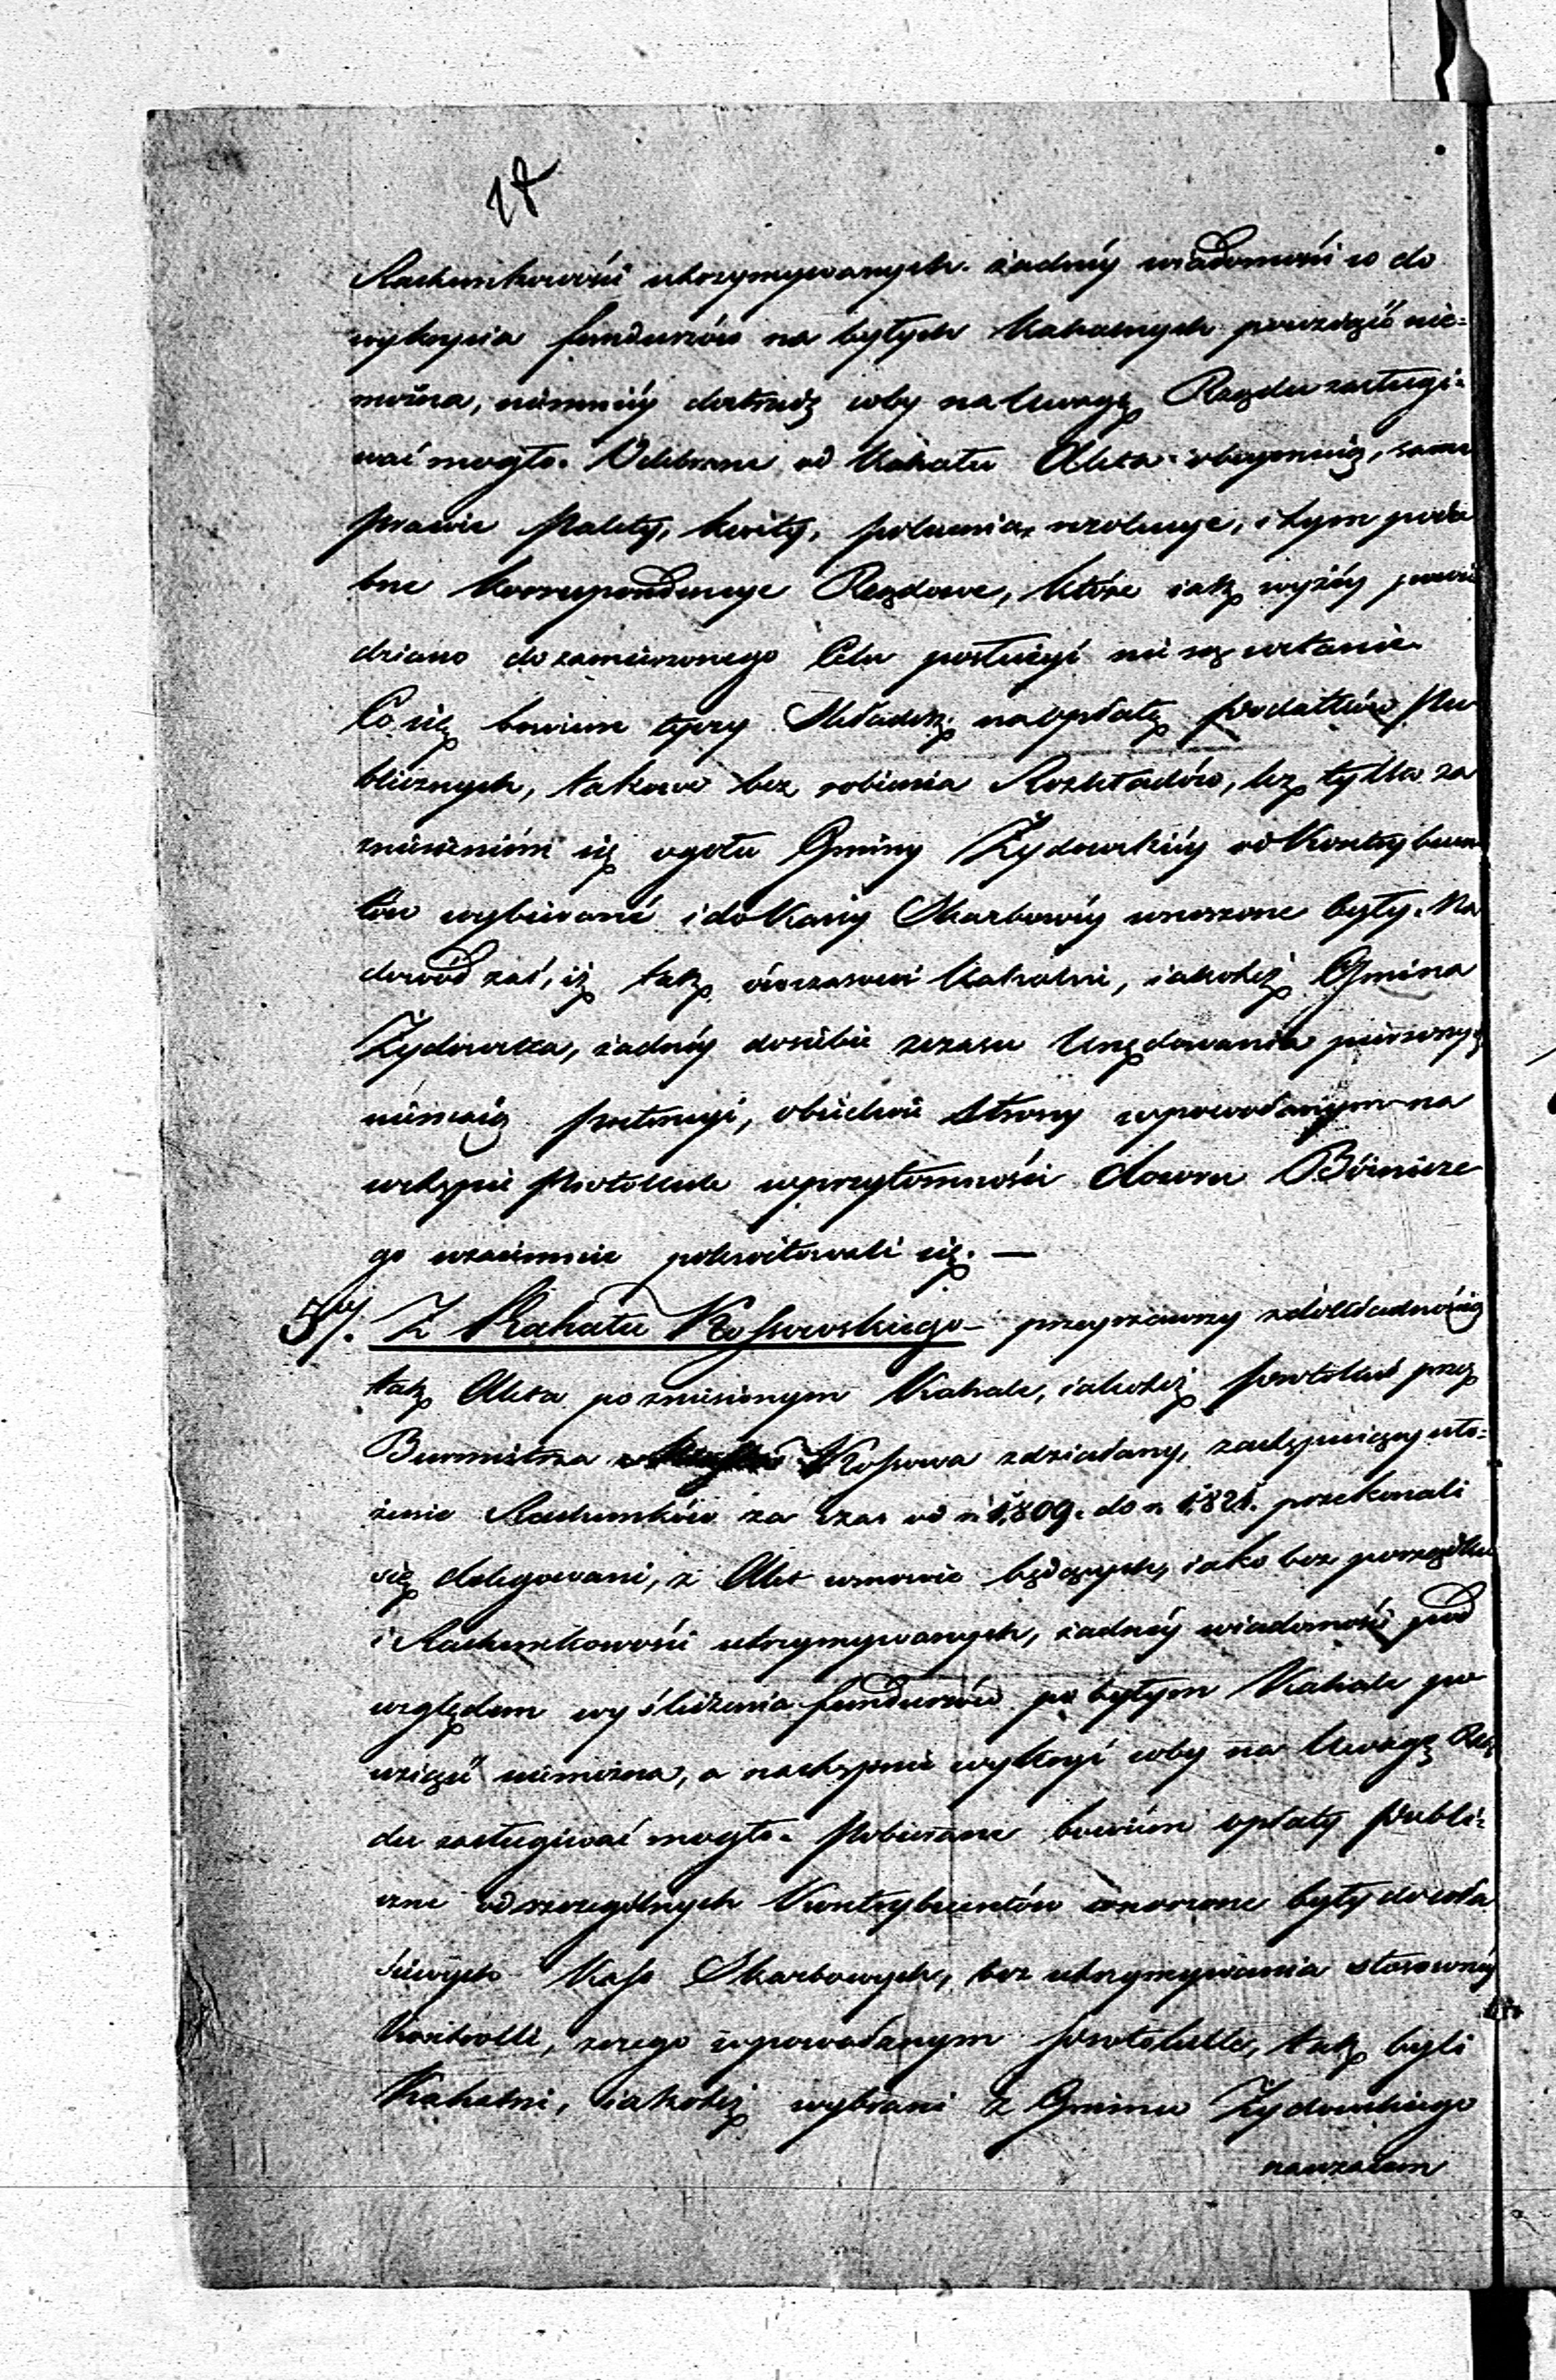 18
Rachunkowości utrzymywanych żadnéy wiadomości co do
wykrycia funduszów na byłych Kahalnych powziąść nie=
można, niemniéy dostrzedz coby na Uwagę Rządu zasługi=
wać mogło. Odebrane od Kahału Akta obeymuią, same
prawie Palety, kwity, polecenia, rezolucye, i tym podo
bne korrespondencye Rządowe, które iak wyżéy powie
dziano do zamierzonego Celu posłużyć nie są wstanie.
Co się bowiem tycze Składek na opłatę podatków Pu
blicznych, takowe bez robienia Rozkładów, lecz tylko za
zniesieniem się ogółu Gminy Żydowskiéy od Kontrybuen
tów wybierane i do Kassy Skarbowéy wnoszone były. Na
dowód zaś, iż tak ówczasowi Kahalni, iakoteż Gmina
Żydowska, żadnéy do siebie z czasu Urzędowania pierwszych
niemaią pretensyi, obiedwie Strony w powołanym na
wstępie Protokule w przytomności Dozoru Bóźnicze
go wzaiemnie pokwitowali się. —
5/. Z Kahału Kossowskiego – przeyrzawszy z dokładnością
tak Akta po zniesionym Kahale, iakoteż protokuł przez
Burmistrza Kossowa zdziałany, zastępuiący uło=
żenie Rachunków za czas od r. 1809. do r. 1821. przekonali
się delegowani, z Akt w mowie będących, iako bez porządku
i Rachunkowości utrzymywanych, żadnéy wiadomości pod
względem wyśledzenia funduszów po byłym Kahale po
wziąść niemożna, a następnie wykryć coby na Uwagę Rzą
du zasługiwać mogło. Pobierane bowiem opłaty Publi=
czne od szczególnych Kontrybuentów wnoszone były do wła
ściwych Kass Skarbowych, bez utrzymywania stosownéy
Kontrolli, z czego w powołanym protokulle, tak byli
Kahalni, iakoteż wybrani z Gminu Żydowskiego
nawzaiem